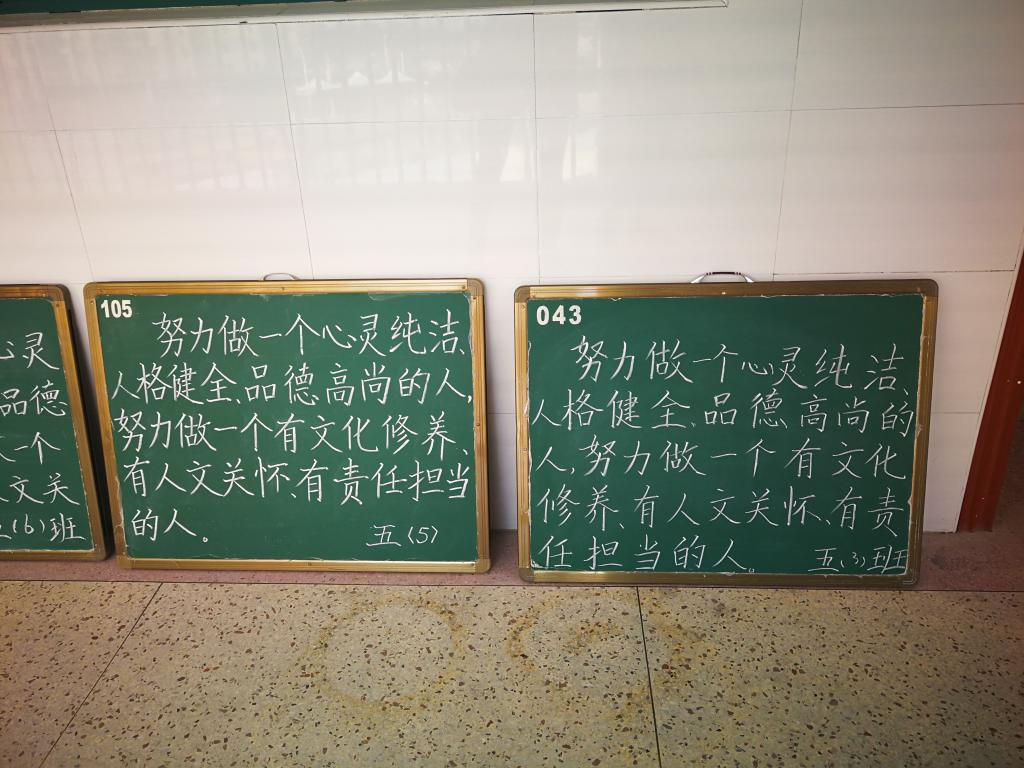 心灵
品德
一个
人文关
(6)班
105
努力做一个心灵纯洁、
人格健全、品德高尚的人,
努力做一个有文化修养、
有人文关怀、有责任担当
的人。
五(5)
043
努力做一个心灵纯洁、
人格健全、品德高尚的
人,努力做一个有文化
修养、有人文关怀、有责
任担当的人。
五(3)班